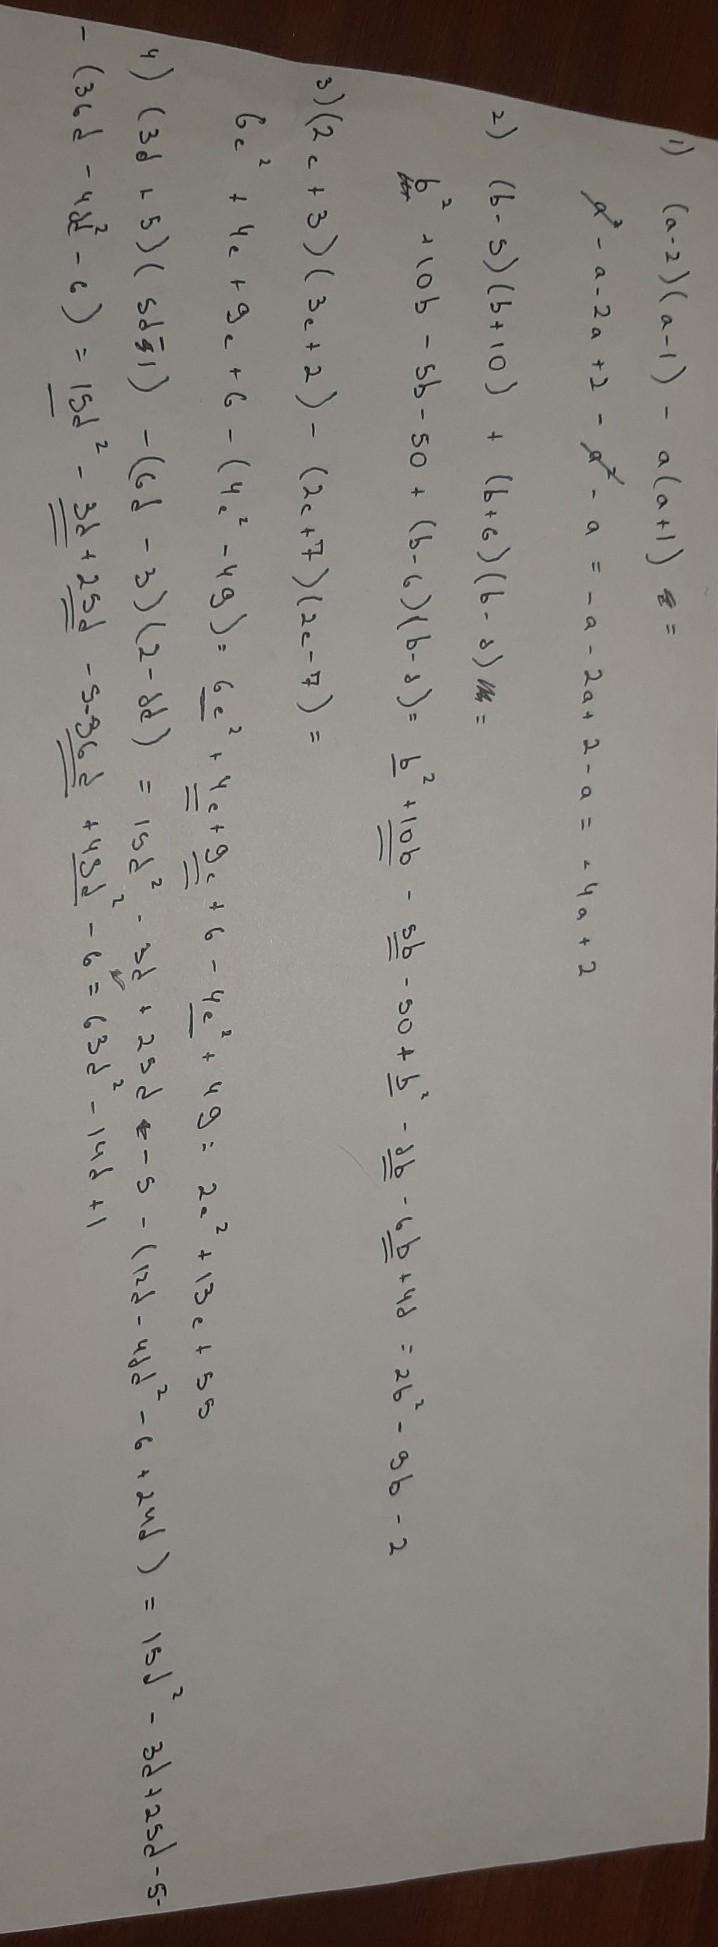 1) (a-2)(a-1) - a(a+1) =
a² - a - 2a + 2 - a² - a = -a - 2a + 2 - a = -4a + 2
2) (b-5)(b+10) + (b+6)(b-8) =
b² + 10b - 5b - 50 + (b-6)(b-8) = b² + 10b - 5b - 50 + b² - 8b - 6b + 48 = 2b² - 9b - 2
3) (2c+3)(3c+2) - (2c+7)(2c-7) =
6c² + 4c + 9c + 6 - (4c² - 49) = 6c² + 4c + 9c + 6 - 4c² + 49 = 2c² + 13c + 55
4) (3d+5)(5d-1) - (6d-3)(2-8d) = 15d² - 3d + 25d - 5 - (12d - 48d² - 6 + 24d) = 15d² - 3d + 25d - 5 -
- (36d - 48d² - 6) = 15d² - 3d + 25d - 5 - 36d + 48d² - 6 = 63d² - 14d + 1